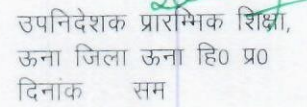 उपनिदेशक प्रारम्भिक शिक्षा,
ऊना जिला ऊना हि0 प्र0
दिनांक सम